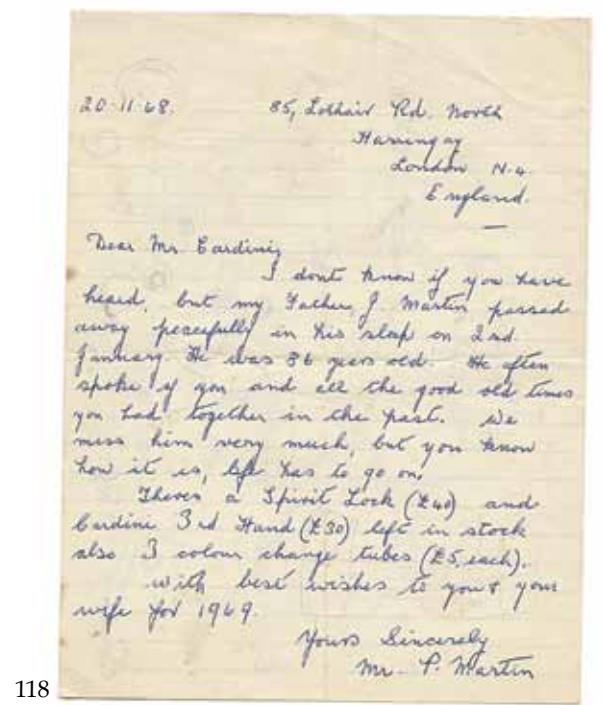 20·11·68.
85, Lothair Rd. North
Harringay
London N.4.
England.
Dear Mr. Cardini,
I dont know if you have
heard, but my Father, J. Martin passed
away peacefully in his sleep on 2nd
January. He was 86 years old. He often
spoke of you and all the good old times
you had together in the past. We
miss him very much, but you know
how it is, life has to go on.
Theres a Spirit Lock (£40) and
Cardini 3rd Hand (£30) left in stock
also 3 colour change tubes (£5, each).
With best wishes to you & your
wife for 1969.
Yours Sincerely
Mr. P. Martin
118